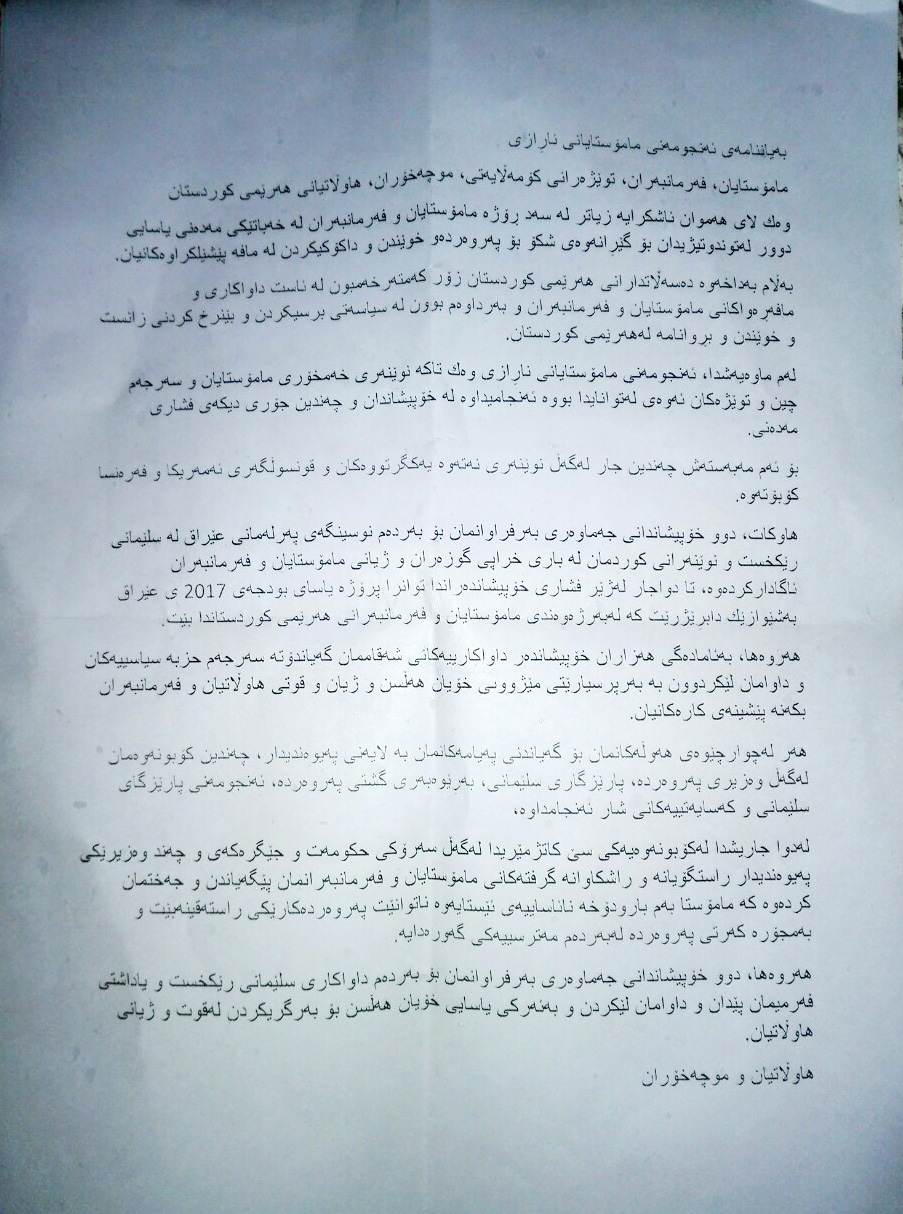 بەیاننامەی ئەنجومەنی مامۆستایانی ناڕازی
مامۆستایان، فەرمانبەران، توێژەرانی کۆمەڵایەتی، موچەخۆران، هاوڵاتیانی هەرێمی کوردستان
وەك لای هەموان ئاشکرایە زیاتر لە سەد ڕۆژە مامۆستایان و فەرمانبەران لە خەباتێکی مەدەنی یاسایی
دوور لەتوندوتیژیدان بۆ گێڕانەوەی شکۆ بۆ پەروەردەو خوێندن و داکۆکیکردن لە مافە پێشێلکراوەکانیان.
بەڵام بەداخەوە دەسەڵاتدارانی هەرێمی کوردستان زۆر کەمتەرخەمبون لە ئاست داواکاری و
مافەڕەواکانی مامۆستایان و فەرمانبەران و بەرداوەم بوون لە سیاسەتی برسیکردن و بێنرخ کردنی زانست
و خوێندن و بڕوانامە لەهەرێمی کوردستان.
لەم ماوەیەشدا، ئەنجومەنی مامۆستایانی ناڕازی وەك تاکە نوێنەری خەمخۆری مامۆستایان و سەرجەم
چین و توێژەکان ئەوەی لەتوانایدا بووە ئەنجامیداوە لە خۆپیشاندان و چەندین جۆری دیکەی فشاری
مەدەنی.
بۆ ئەم مەبەستەش چەندین جار لەگەڵ نوێنەری نەتەوە یەکگرتووەکان و قونسوڵگەری ئەمەریکا و فەرەنسا
کۆبۆتەوە.
هاوکات، دوو خۆپیشاندانی جەماوەری بەرفراوانمان بۆ بەردەم نوسینگەی پەرلەمانی عێراق لە سلێمانی
رێکخست و نوێنەرانی کوردمان لە باری خراپی گوزەران و ژیانی مامۆستایان و فەرمانبەران
ئاگادارکردەوە، تا دواجار لەژێر فشاری خۆپیشاندەراندا توانرا پرۆژە یاسای بودجەی 2017 ی عێراق
بەشێوازێك دابرێژرێت کە لەبەرژەوەندی مامۆستایان و فەرمانبەرانی هەرێمی کوردستاندا بێت.
هەروەها، بەئامادەگی هەزاران خۆپیشاندەر داواکارییەکانی شەقاممان گەیاندۆتە سەرجەم حزبە سیاسییەکان
و داوامان لێکردوون بە بەرپرسیارێتی مێژوویی خۆیان هەڵسن و ژیان و قوتی هاوڵاتیان و فەرمانبەران
بکەنە پێشینەی کارەکانیان.
هەر لەچوارچێوەی هەوڵەکانمان بۆ گەیاندنی پەیامەکانمان بە لایەنی پەیوەندیدار، چەندین کۆبونەوەمان
لەگەڵ وەزیری پەروەردە، پارێزگاری سلێمانی، بەرێوەبەری گشتی پەروەردە، ئەنجومەنی پارێزگای
سلێمانی و کەسایەتییەکانی شار ئەنجامداوە،
لەدوا جاریشدا لەکۆبونەوەیەکی سێ کاتژمێریدا لەگەڵ سەرۆکی حکومەت و جێگرەکەی و چەند وەزیرێکی
پەیوەندیدار راستگۆیانە و راشکاوانە گرفتەکانی مامۆستایان و فەرمانبەرانمان پێگەیاندن و جەختمان
کردەوە کە مامۆستا بەم بارودۆخە نائاساییەی ئێستایەوە ناتوانێت پەروەردەکارێکی راستەقینەبێت و
بەمجۆرە کەرتی پەروەردە لەبەردەم مەترسییەکی گەورەدایە.
هەروەها، دوو خۆپیشاندانی جەماوەری بەرفراوانمان بۆ بەردەم داواکاری سلێمانی رێکخست و یاداشتی
فەرمیمان پێدان و داوامان لێکردن و بەئەرکی یاسایی خۆیان هەڵسن بۆ بەرگریکردن لەقوت و ژیانی
هاوڵاتیان.
هاوڵاتیان و موچەخۆران